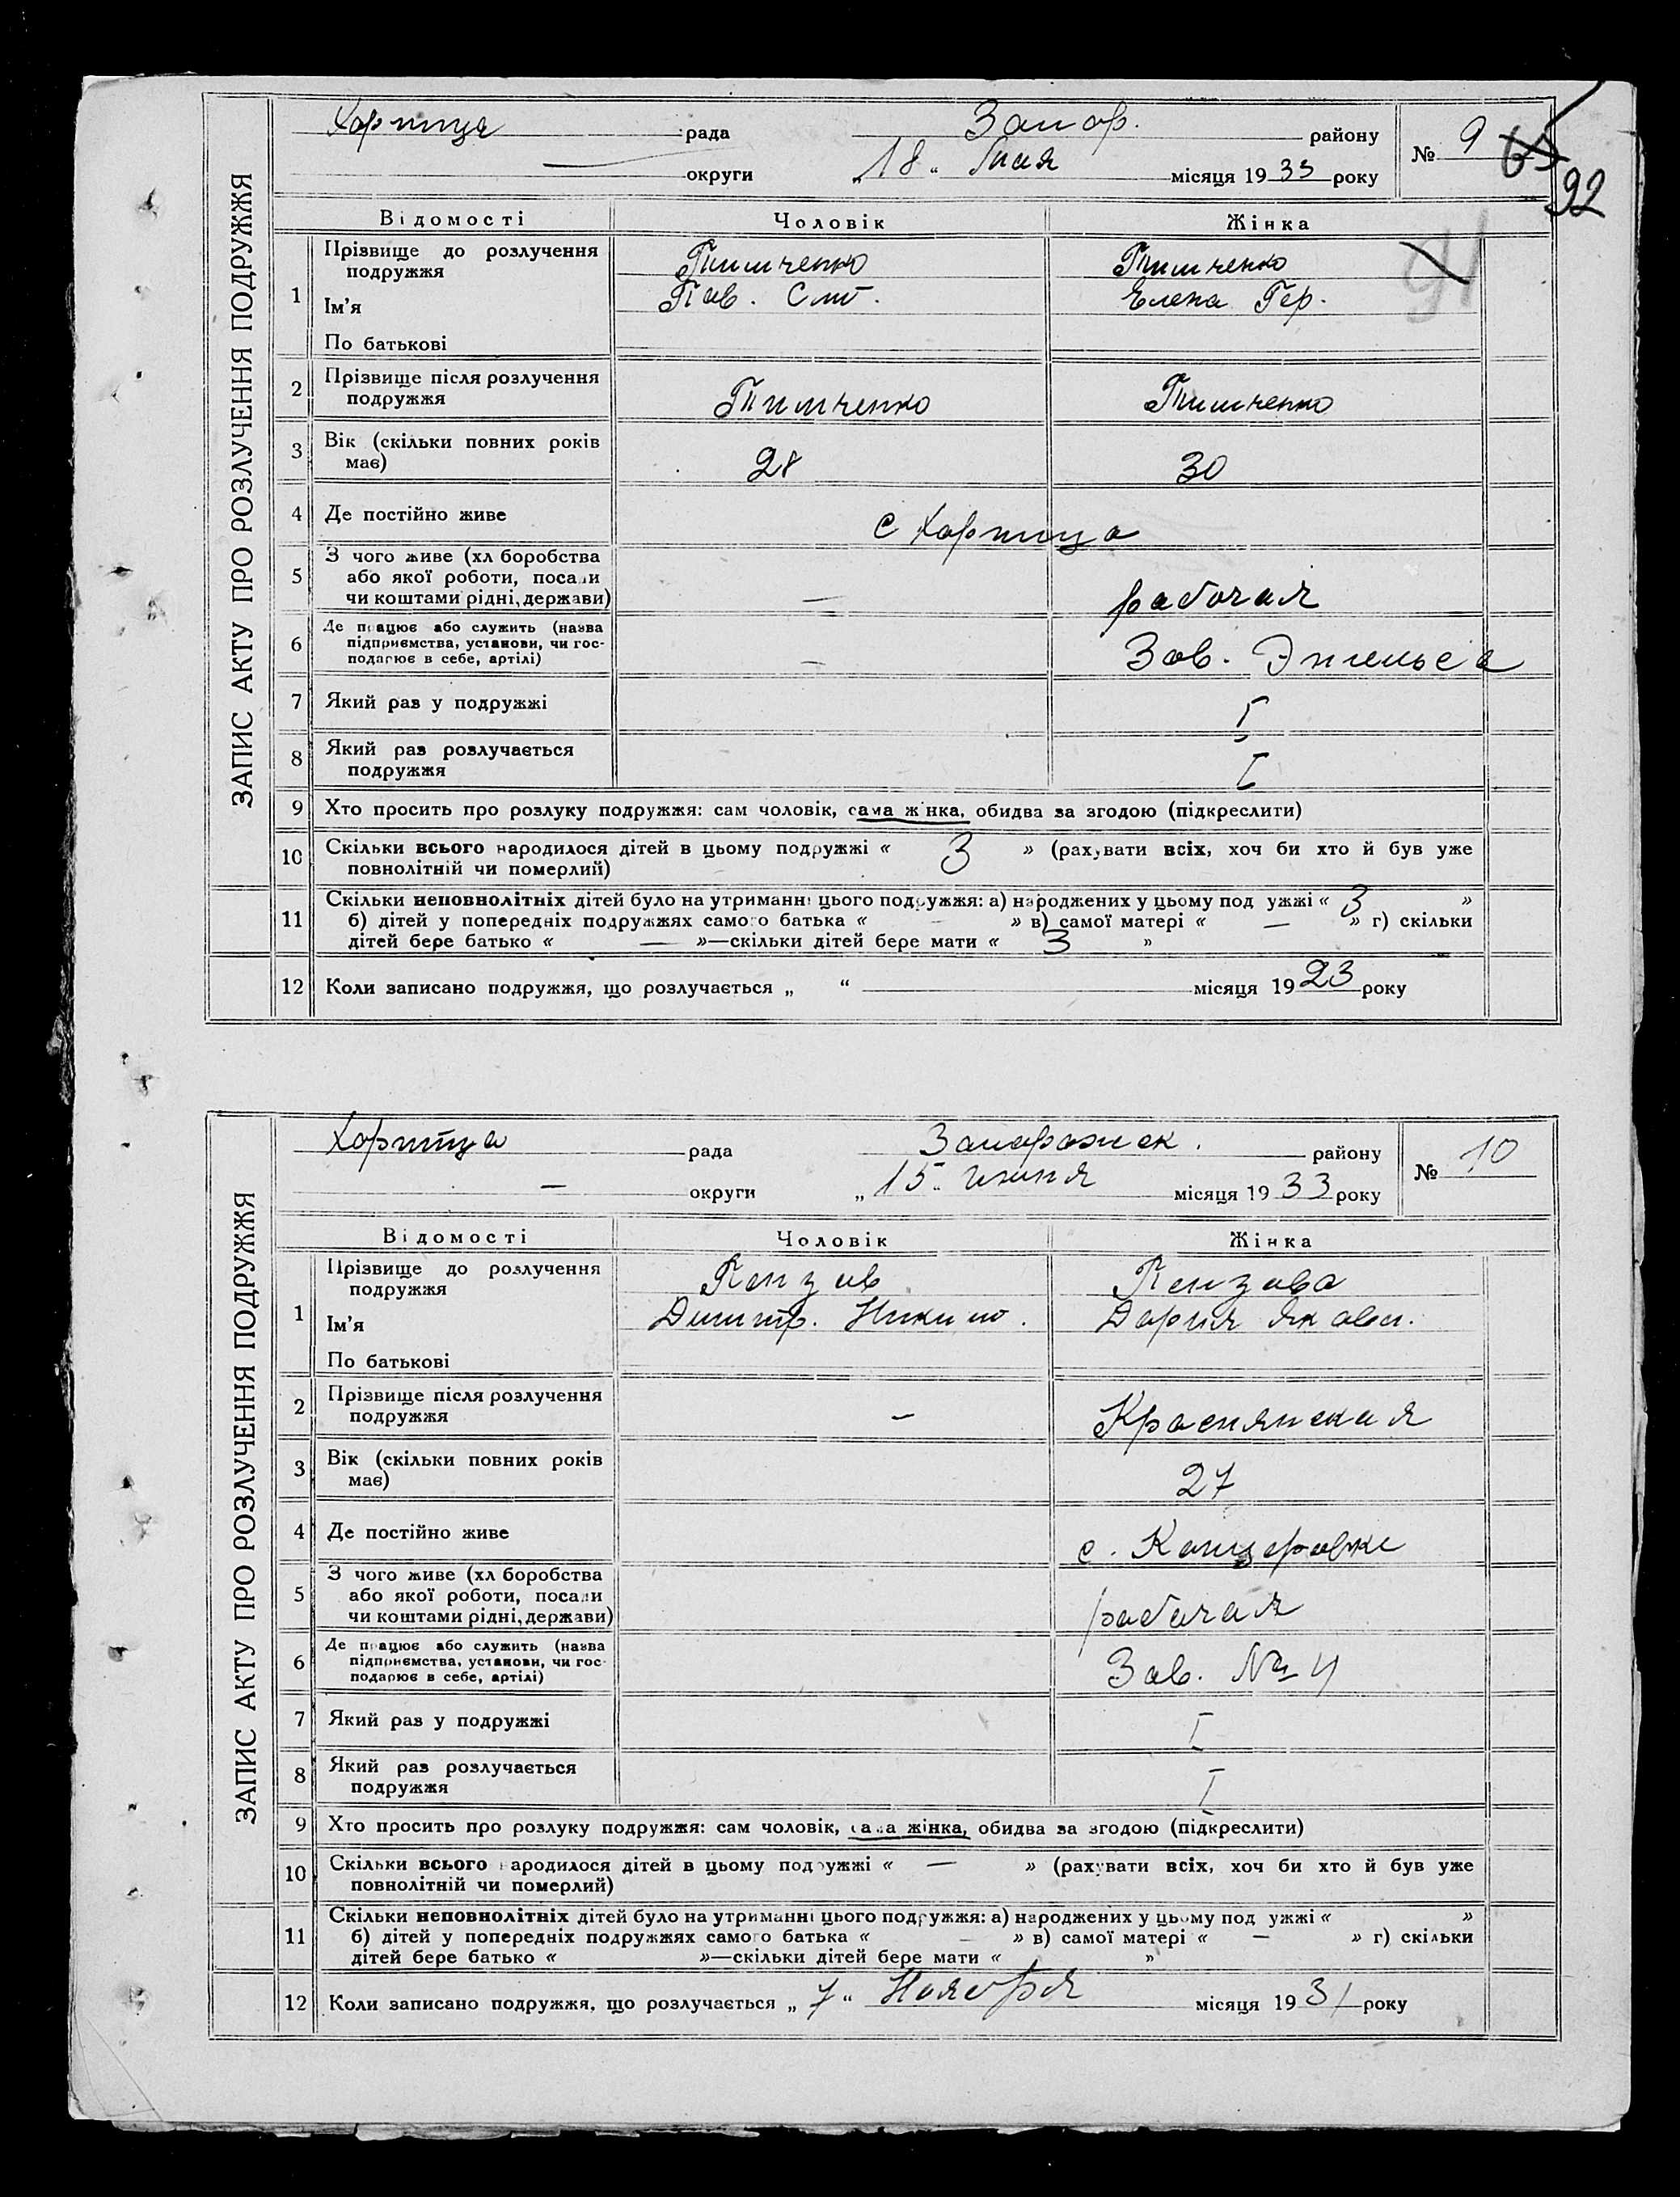 ЗАПИС АКТУ ПРО РОЗЛУЧЕННЯ ПОДРУЖЖЯ
Хортица рада Запор. району № 9 92
— округи „18“ Мая місяця 1933 року
Відомості Чоловік Жінка
91
1 Прізвище до розлучення подружжя Тимченко Тимченко
Ім'я Пав. Елена Гер.
По батькові
2 Прізвище після розлучення подружжя Тимченко Тимченко
3 Вік (скільки повних років має) 28 30
4 Де постійно живе с Хортица
5 З чого живе (хлiборобства або якої роботи, посади чи коштами рідні, держави) — рабочая
6 Де працює або служить (назва підприємства, установи, чи господарює в себе, артілі) — Зав. Энгельса
7 Який раз у подружжі I
8 Який раз розлучається подружжя I
9 Хто просить про розлуку подружжя: сам чоловік, сама жінка, обидва за згодою (підкреслити)
10 Скільки всього народилося дітей в цьому подружжі « 3 » (рахувати всіх, хоч би хто й був уже
повнолітній чи померлий)
11 Скільки неповнолітніх дітей було на утриманні цього подружжя: а) народжених у цьому подружжі « 3 »
б) дітей у попередніх подружжях самого батька « — » в) самої матері « — » г) скільки
дітей бере батько « — »—скільки дітей бере мати « 3 »
12 Коли записано подружжя, що розлучається „ “ місяця 1923 року
ЗАПИС АКТУ ПРО РОЗЛУЧЕННЯ ПОДРУЖЖЯ
Хортица рада Запорожск. району № 10
— округи „15“ июня місяця 1933 року
Відомості Чоловік Жінка
1 Прізвище до розлучення подружжя Пензев Пензева
Ім'я Дмитр. Никит. Дария Яковл.
По батькові
2 Прізвище після розлучення подружжя — Краснянская
3 Вік (скільки повних років має) 27
4 Де постійно живе с. Канцеровке
5 З чого живе (хлiборобства або якої роботи, посади чи коштами рідні, держави) рабочая
6 Де працює або служить (назва підприємства, установи, чи господарює в себе, артілі) Зав. № 4
7 Який раз у подружжі I
8 Який раз розлучається подружжя I
9 Хто просить про розлуку подружжя: сам чоловік, сама жінка, обидва за згодою (підкреслити)
10 Скільки всього народилося дітей в цьому подружжі « — » (рахувати всіх, хоч би хто й був уже
повнолітній чи померлий)
11 Скільки неповнолітніх дітей було на утриманні цього подружжя: а) народжених у цьому подружжі « »
б) дітей у попередніх подружжях самого батька « — » в) самої матері « — » г) скільки
дітей бере батько « »—скільки дітей бере мати « »
12 Коли записано подружжя, що розлучається „7“ Ноября місяця 1931 року